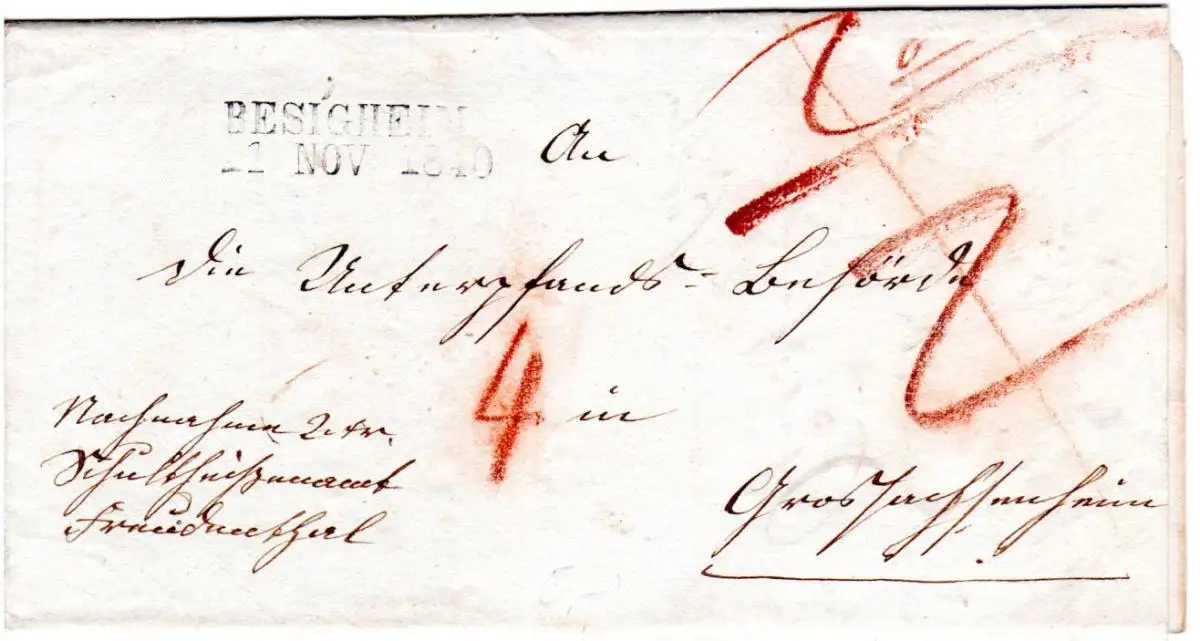 BESIGHEIM
11 NOV 1840
An
die Unterpfands-Behörde
4
in
Grossachsenheim
Nachnahme 2 xr.
Schultheißenamt
Freudenthal
2
2